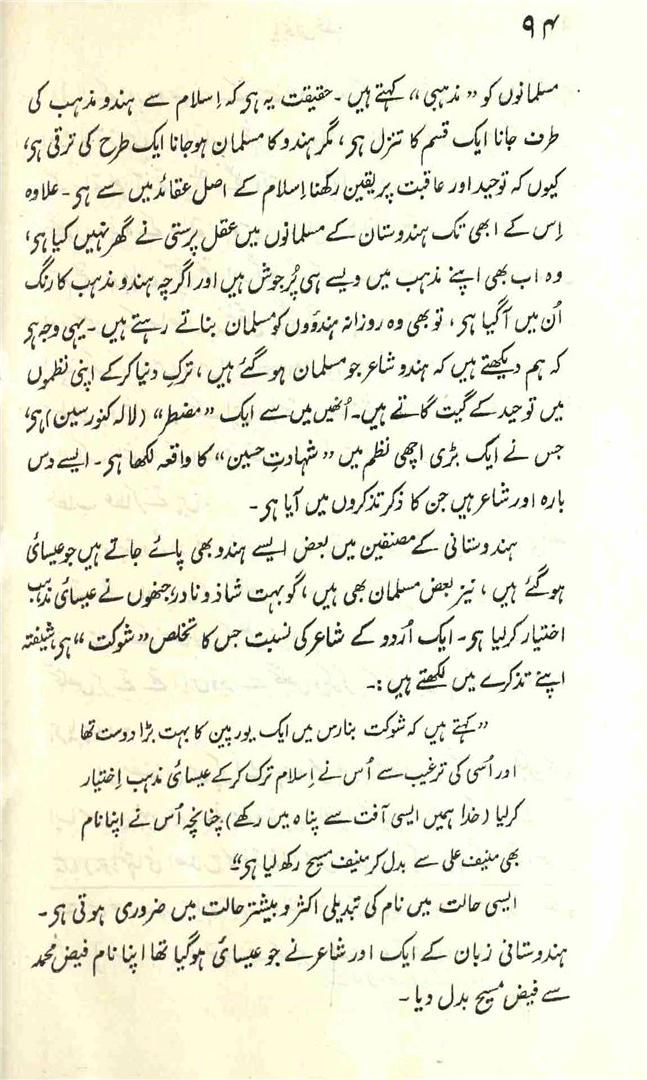 ۹۴
مسلمانوں کو ”مذہبی“ کہتے ہیں۔ حقیقت یہ ہی کہ اِسلام سے ہندو مذہب کی
طرف جانا ایک قسم کا تنزل ہی، مگر ہندو کا مسلمان ہوجانا ایک طرح کی ترقی ہی،
کیوں کہ توحید اور عاقبت پر یقین رکھنا اِسلام کے اصل عقائد میں سے ہی۔ علاوہ
اِس کے ابھی تک ہندوستان کے مسلمانوں میں عقل پرستی نے گھر نہیں کیا ہی،
وہ اب بھی اپنے مذہب میں ویسے ہی پُرجوش ہیں اور اگرچہ ہندو مذہب کا رنگ
اُن میں آگیا ہی، تو بھی وہ روزانہ ہندؤوں کو مسلمان بناتے رہتے ہیں۔ یہی وجہ ہو
کہ ہم دیکھتے ہیں کہ ہندو شاعر جو مسلمان ہوگئے ہیں، ترکِ دنیا کرکے اپنی نظموں
میں توحید کے گیت گاتے ہیں۔ اُنھیں میں سے ایک ”مضطر“ (لالہ کنور سین) ہی،
جس نے ایک بڑی اچھی نظم میں ”شہادتِ حسین“ کا واقعہ لکھا ہی۔ ایسے دس
بارہ اور شاعر ہیں جن کا ذکر تذکروں میں آیا ہی۔
ہندوستانی کے مصنفین میں بعض ایسے ہندو بھی پائے جاتے ہیں جو عیسائی
ہوگئے ہیں، نیز بعض مسلمان بھی ہیں، گو بہت شاذ و نادر، جنھوں نے عیسائی مذہب
اختیار کرلیا ہی۔ ایک اُردو کے شاعر کی نسبت جس کا تخلص ”شوکت“ ہی شیفتہ
اپنے تذکرے میں لکھتے ہیں:۔
”کہتے ہیں کہ شوکت بنارس میں ایک یورپین کا بہت بڑا دوست تھا
اور اُسی کی ترغیب سے اُس نے اِسلام ترک کرکے عیسائی مذہب اِختیار
کرلیا (خدا ہمیں ایسی آفت سے پناہ میں رکھے) چنانچہ اُس نے اپنا نام
بھی منیف علی سے بدل کر منیف مسیح رکھ لیا ہی“۔
ایسی حالت میں نام کی تبدیلی اکثر و بیشتر حالت میں ضروری ہوتی ہی۔
ہندوستانی زبان کے ایک اور شاعر نے جو عیسائی ہوگیا تھا اپنا نام فیض محمد
سے فیض مسیح بدل دیا۔